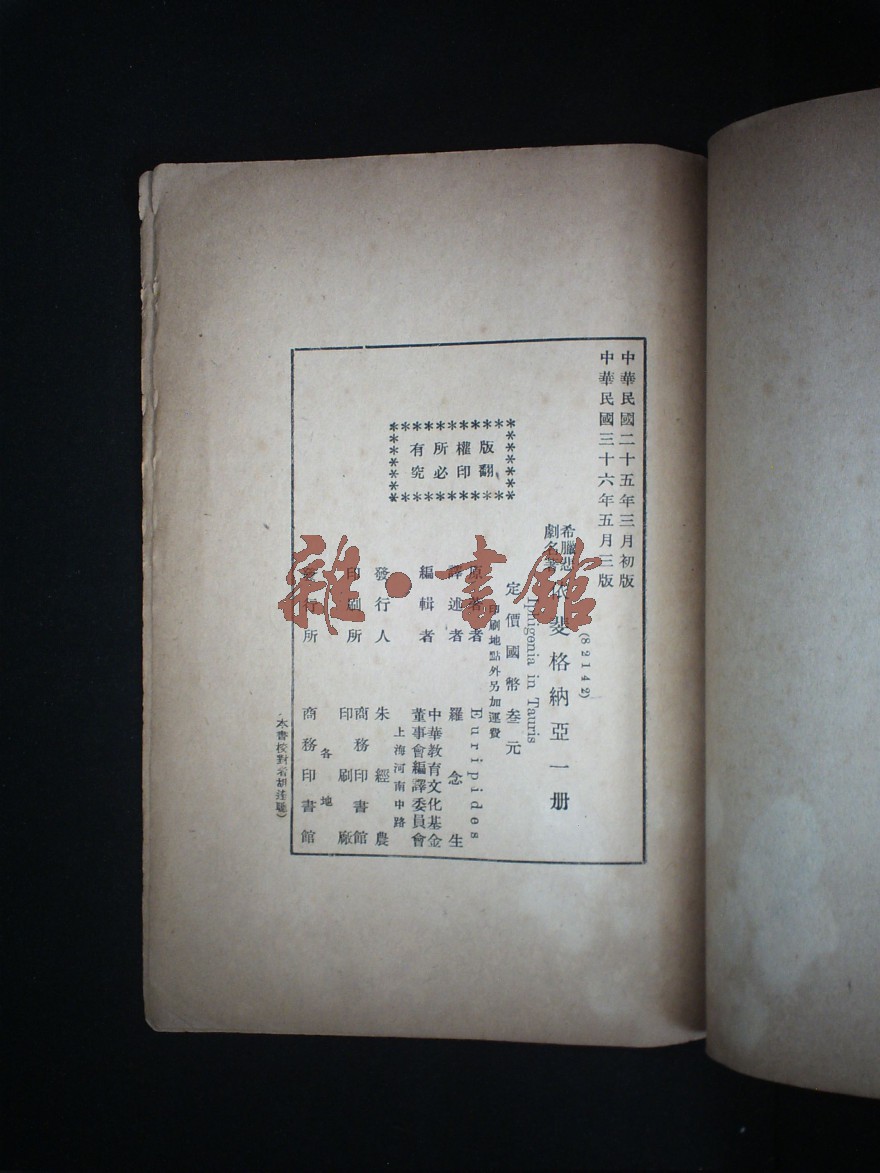 中華民國二十五年三月初版
中華民國三十六年五月三版
(82142)
希臘悲劇名著 依斐格納亞 一册
Iphigenia in Tauris
定價國幣叁元
印刷地點外另加運費
版權所有
翻印必究
原著者 Euripides
譯述者 羅念生
編輯者 中華教育文化基金董事會編譯委員會
上海河南中路
發行人 朱經農
印刷所 商務印書館印刷廠
各地
發行所 商務印書館
雜·書館